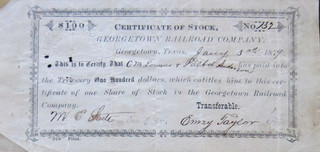 $100 CERTIFICATE OF STOCK, No. 132
GEORGETOWN RAILROAD COMPANY.
Georgetown, Texas, 1879
This is to Certify, That has paid into
the Treasury One Hundred dollars, which entitles him to this cer-
tificate of one Share of Stock in the Georgetown Railroad
Company. Transferable.
Emzy Taylor